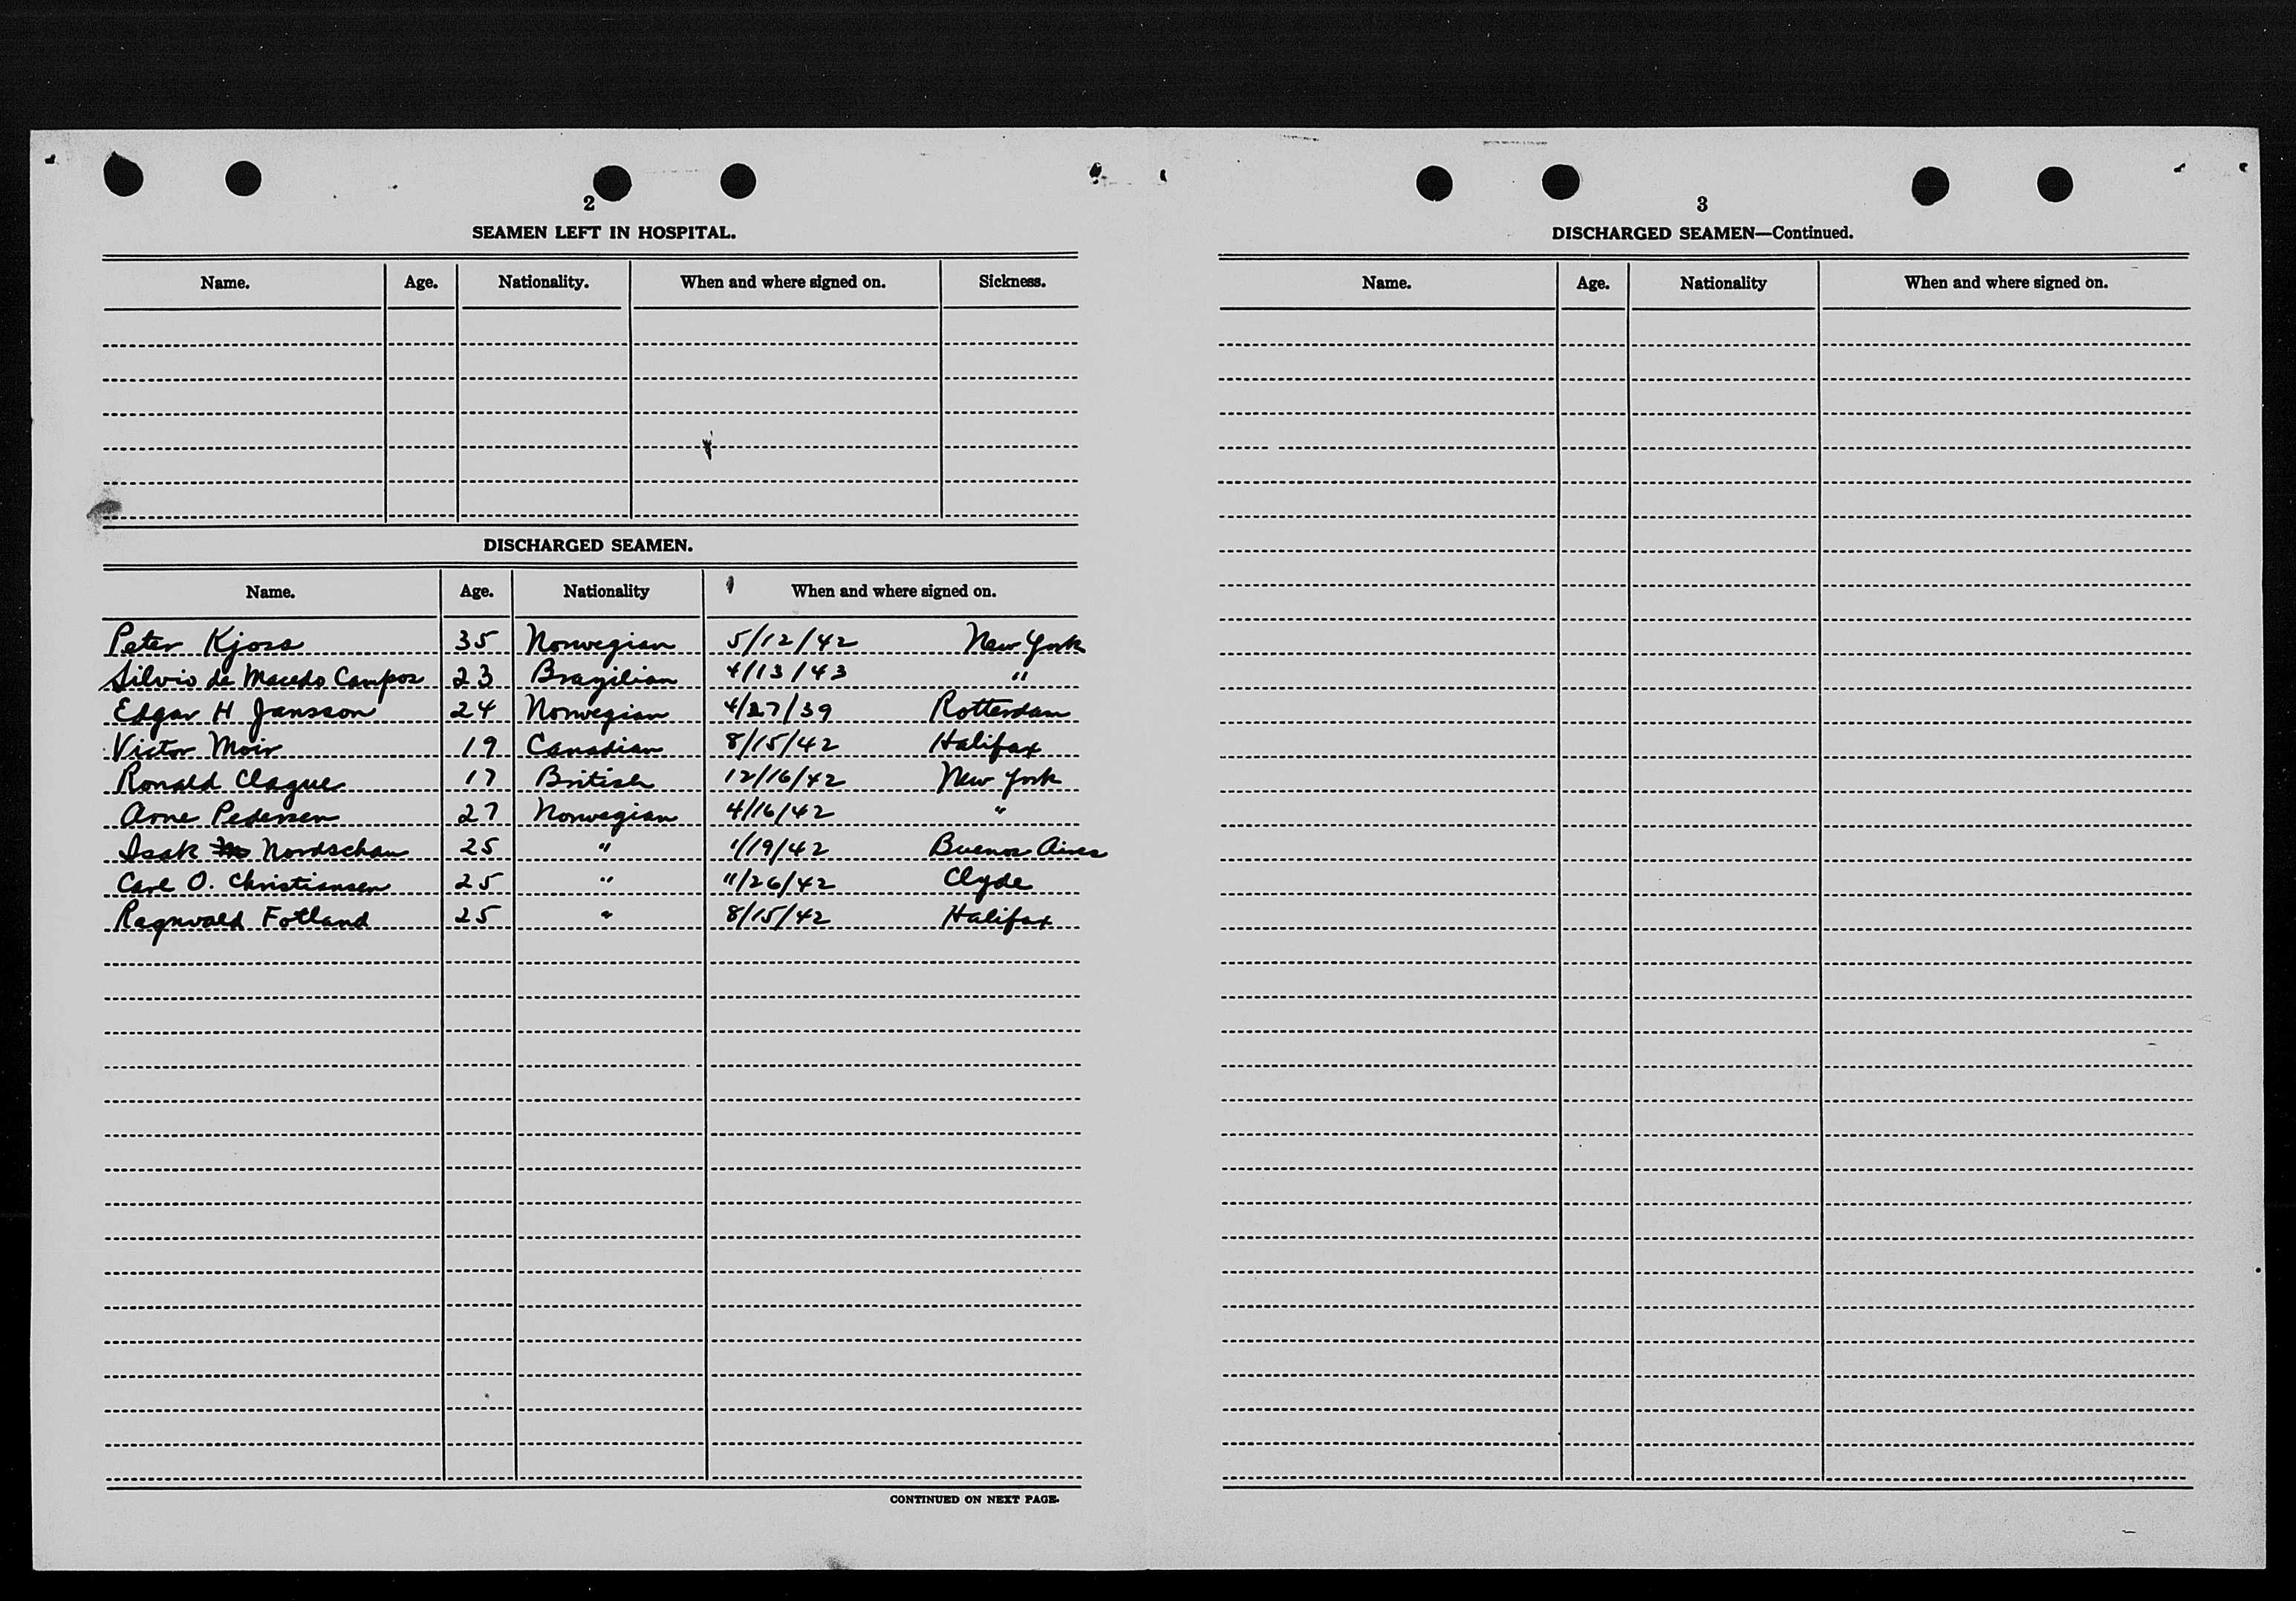 2
SEAMEN LEFT IN HOSPITAL.
Name. Age. Nationality. When and where signed on. Sickness.
DISCHARGED SEAMEN.
Name. Age. Nationality When and where signed on.
Peter Kjoss 35 Norwegian 5/12/42 New York
Silvio de Macedo Campos 23 Brazilian 4/13/43 "
Edgar H Jansson 24 Norwegian 4/27/39 Rotterdam
Victor Moir 19 Canadian 8/15/42 Halifax
Ronald Clague 17 British 12/16/42 New York
Arne Pedersen 27 Norwegian 4/16/42 "
Isak Nordschau 25 " 1/19/42 Buenos Aires
Carl O. Christiansen 25 " 11/26/42 Clyde
Ragnvald Fotland 25 " 8/15/42 Halifax
CONTINUED ON NEXT PAGE.
3
DISCHARGED SEAMEN—Continued.
Name. Age. Nationality When and where signed on.